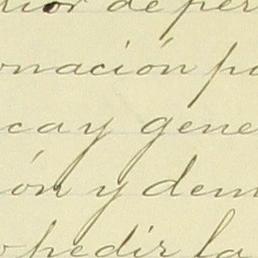 rior de per
nación p
ca y gene
ión y dem
pedir la